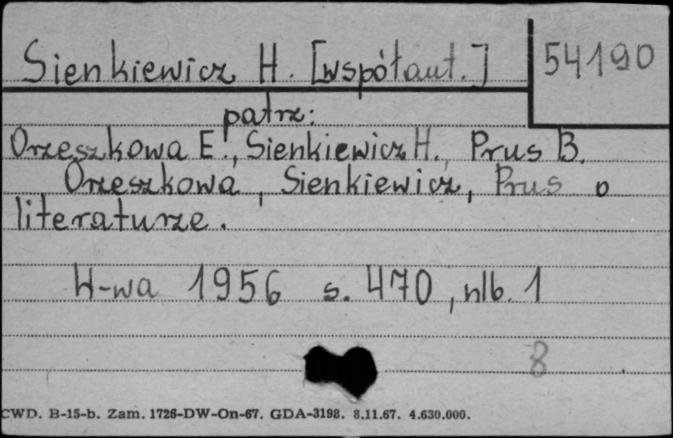 Sienkiewicz H. [współaut.] 54190
patrz:
Orzeszkowa E., Sienkiewicz H., Prus B.
Orzeszkowa, Sienkiewicz, Prus o
literaturze.
W-wa 1956 s. 470, nlb. 1
8
CWD. B-15-b. Zam. 1726-DW-On-67. GDA-3198. 8.11.67. 4.630.000.